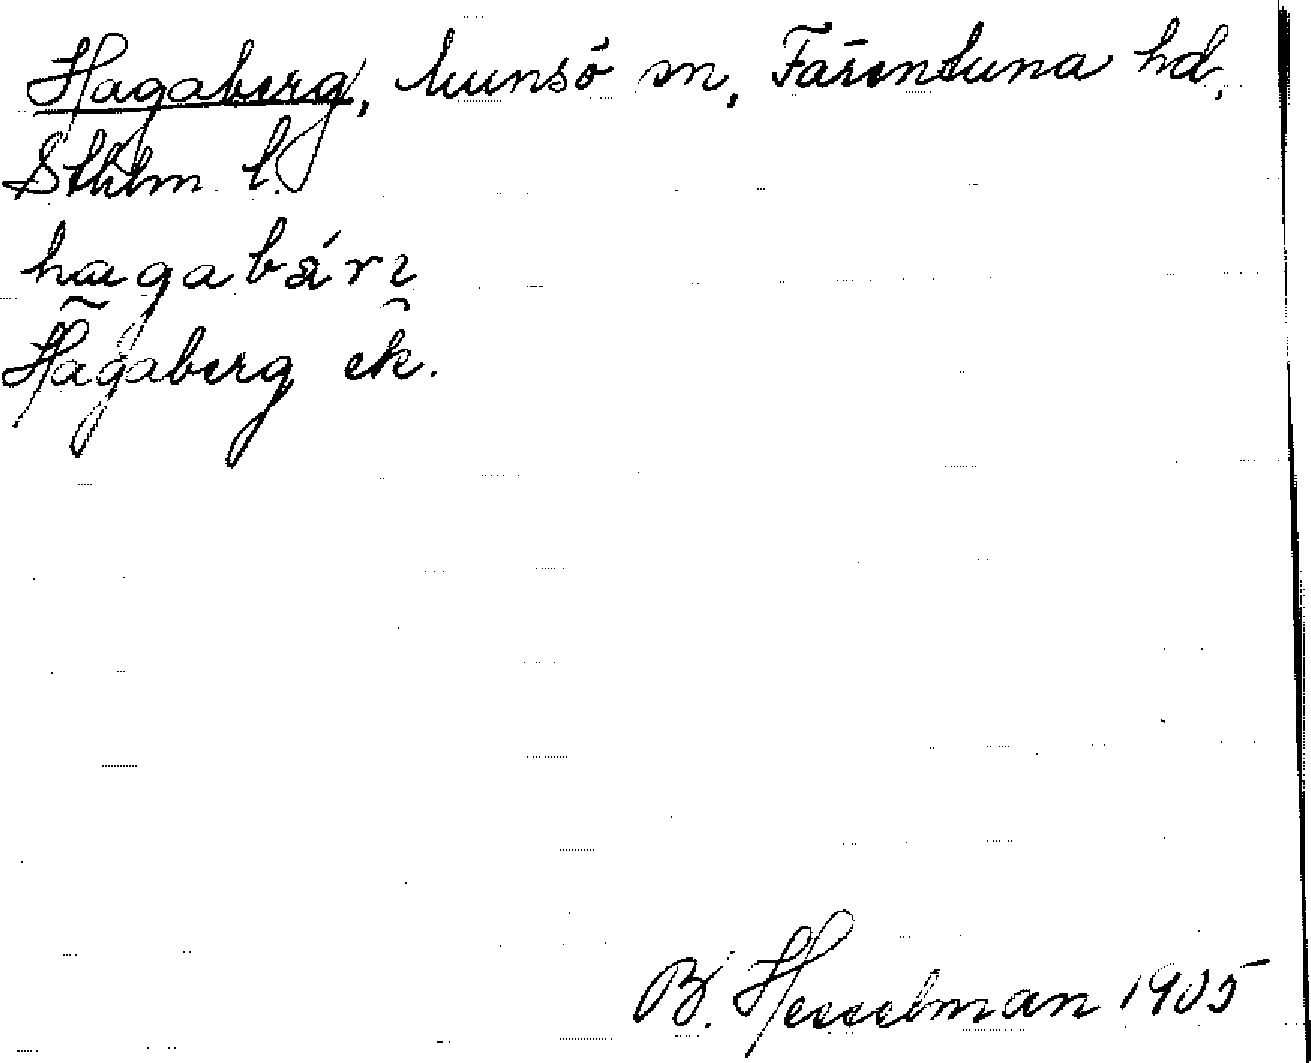 Hagaberg, Munsö sn, Färentuna hd,
Sthlm l.
hagabärɪ
Hagaberg ek.
B. Hesselman 1905